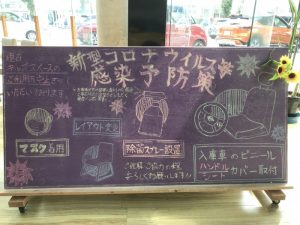 現在
キッズスペースの
ご利用を中止させて
いただいております
新型コロナウイルス
感染予防策
マスク着用
レイアウト変更
除菌スプレー設置
ご理解・ご協力の程
よろしくお願いします!!
入庫車のビニール
ハンドル
シート
カバー取付